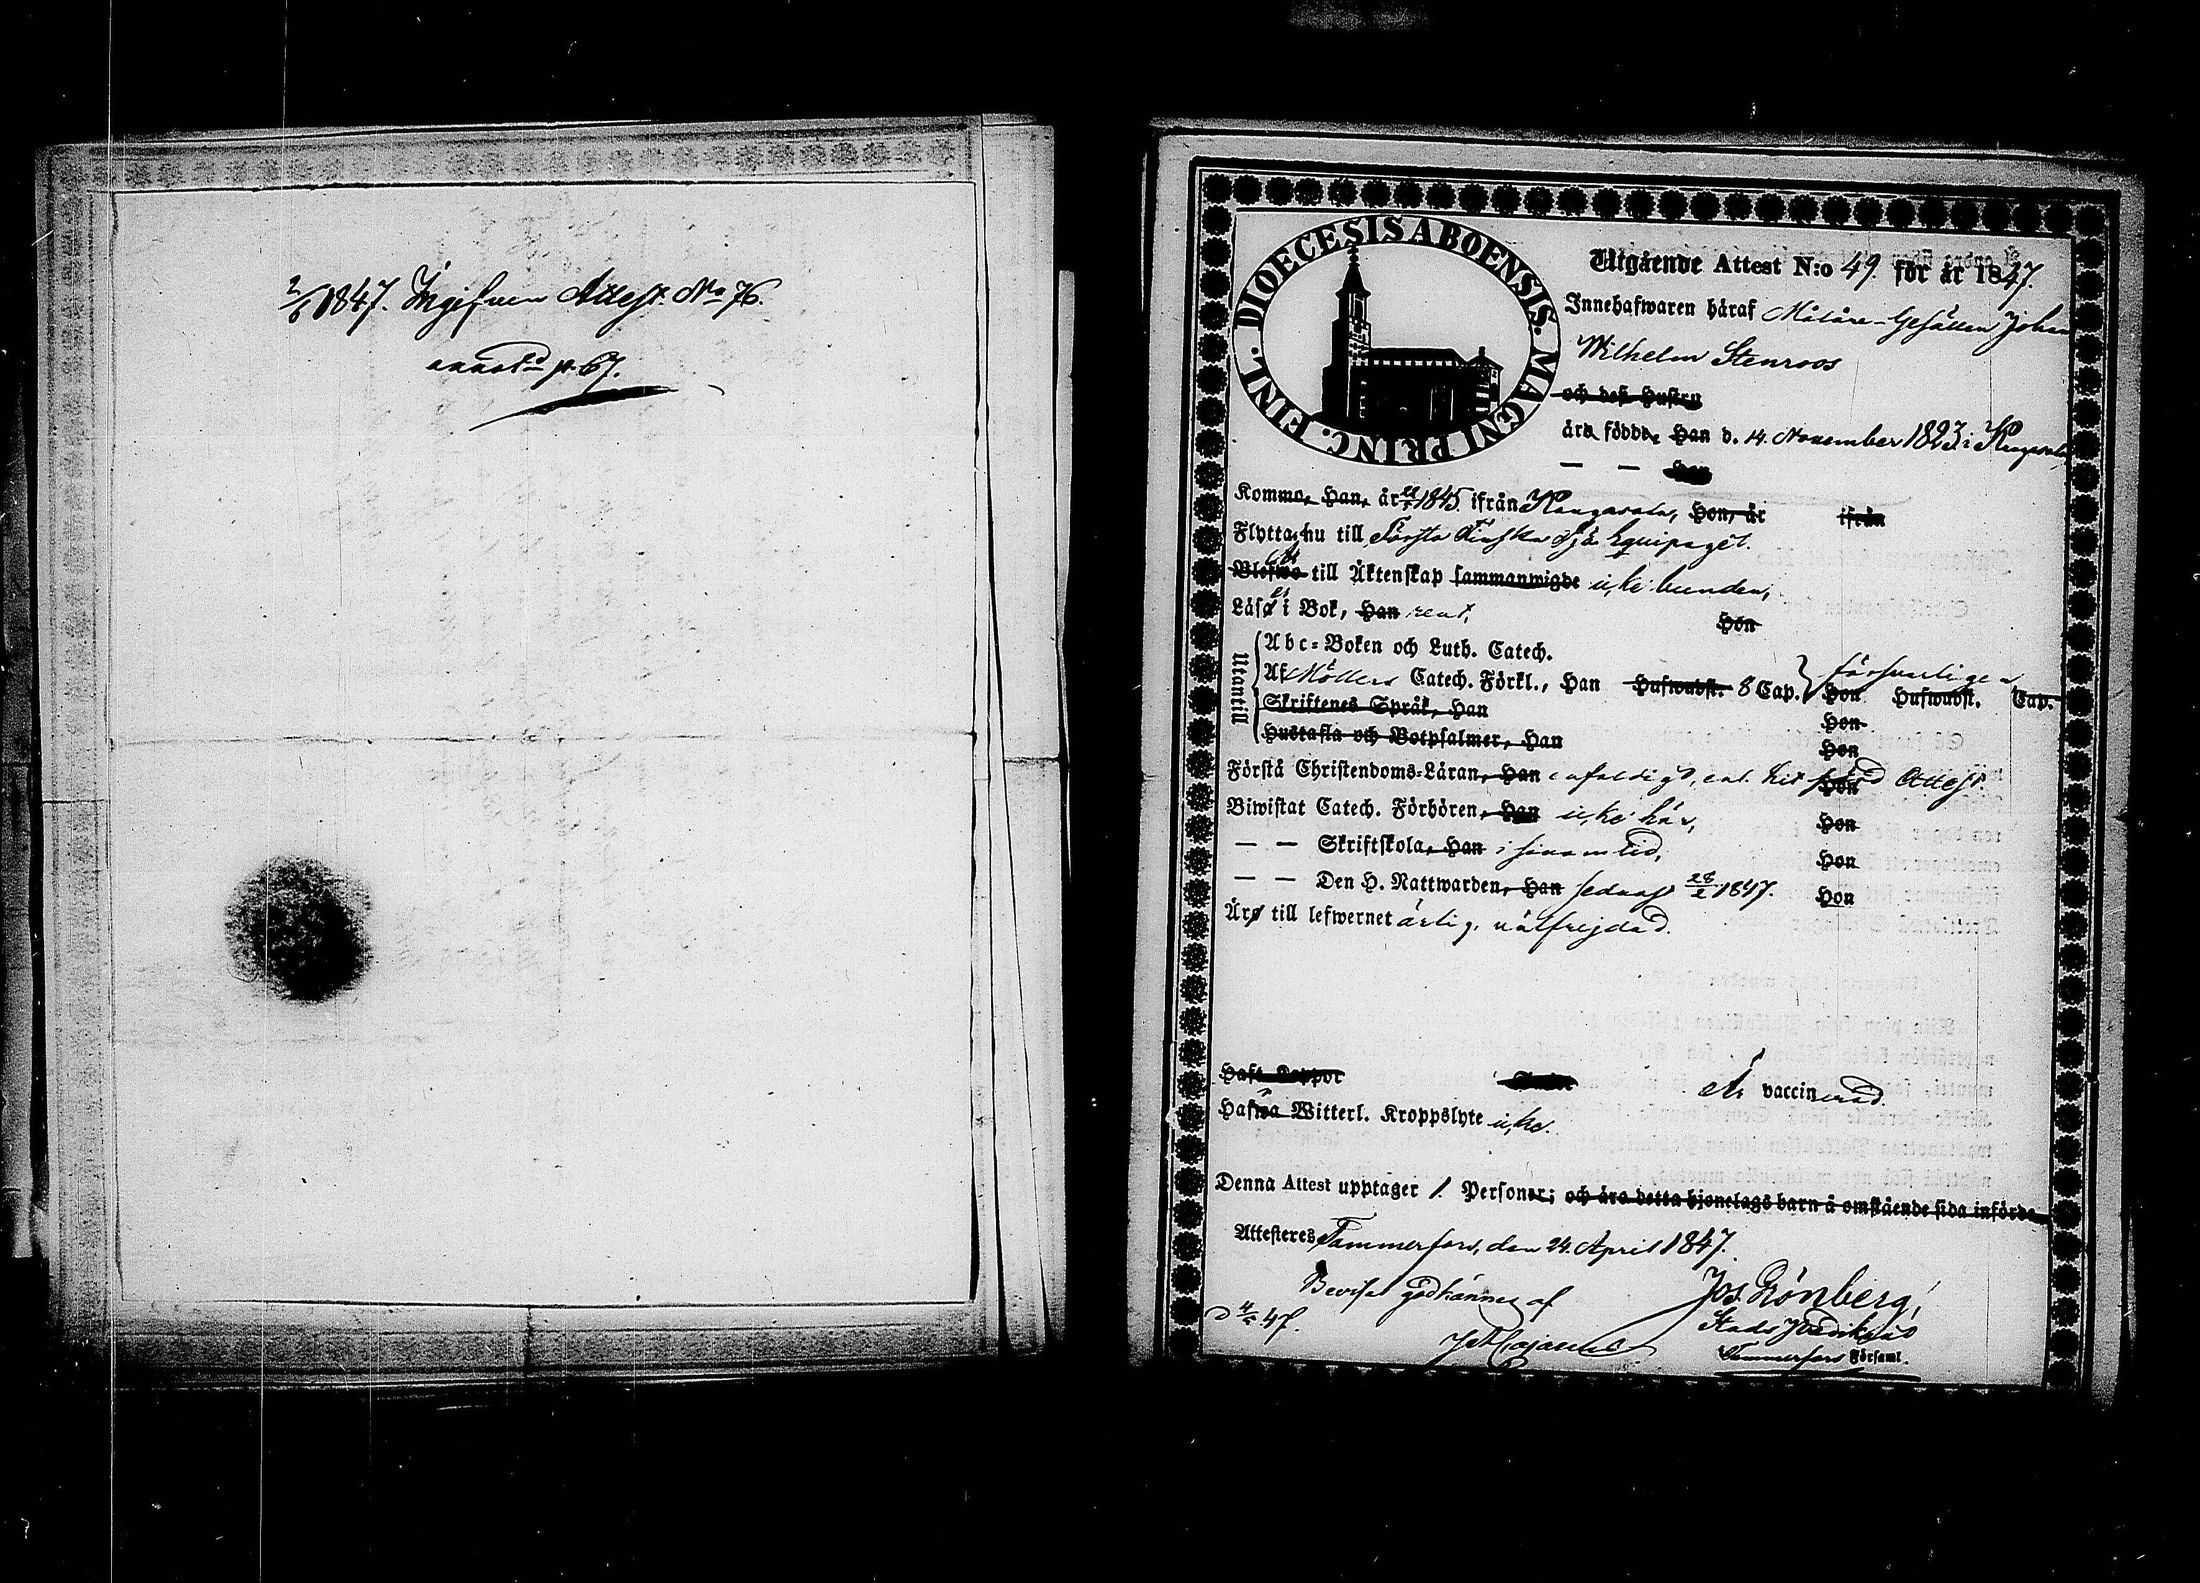 2/6 1847. Ingifven Attest No 76.
annot. p. 67.
DIOECESIS ABOENSIS. MAGNI PRINC. FINL.
Utgående Attest N:o 49. för år 1847.
Innehafwaren häraf Målare-Gesällen Johan
Wilhelm Stenroos
och dess Hustru
äro födde, Han d. 14. November 1823 i Kangasala
— — Hon
Komme, Han, år 1845 ifrån Kangasala, Hon, år ifrån
Flytta nu till Första Finska Sjö Equipaget.
Blefwo till Äktenskap sammanwigde icke bunden,
Läsa i Bok, Han rent, Hon
Utantill
Abc-Boken och Luth. Catech.
Af Möllers Catech. Förkl., Han Hufwudst. 8 Cap. försvarligen Hon Hufwudst. Cap.
Skriftenes Språk, Han Hon
Hustafla och Botpsalmer, Han Hon
Förstå Christendoms-Läran, Han enfaldigt, enl. hit förd Attest. Hon
Biwistat Catech. Förhören, Han icke här, Hon
— — Skriftskola, Han i sinom tid, Hon
— — Den H. Nattwarden, Han sednast 28/2 1847. Hon
Äro till lefwernet ärlig, välfrejdad.
Haft Koppor Är vaccinerad.
Hafwa Witterl. Kroppslyte icke.
Denna Attest upptager 1. Personer; och äro detta hjonelags barn å omstående sida införde.
Attesteres Tammerfors, den 24. April 1847.
Beviset godkännes af Jos. Grönberg,
47. Stads Predikant
Tammerfors Församl.